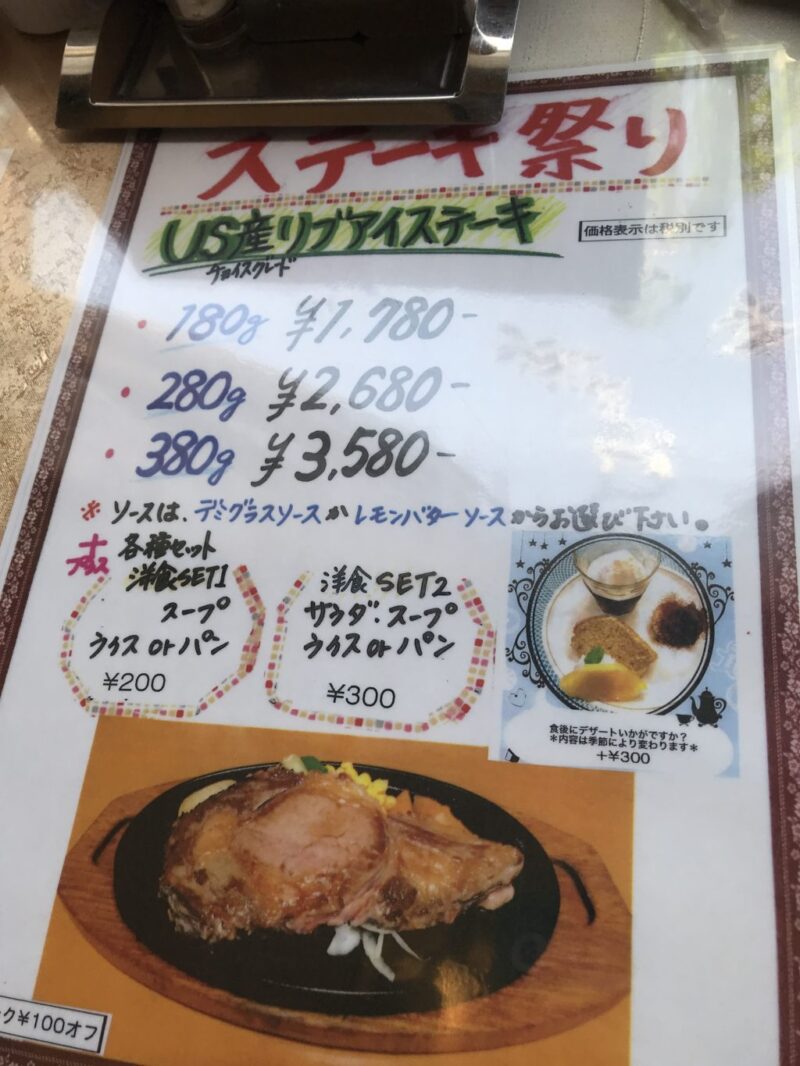 ステーキ祭り
US産リブアイステーキ
チョイスグレード
価格表示は税別です
・180g ¥1,780-
・280g ¥2,680-
・380g ¥3,580-
※ ソースは、デミグラスソースかレモンバターソースからお選び下さい。
プラス
各種セット
洋食SET1
スープ
ライス or パン
¥200
洋食 SET2
サラダ・スープ
ライス or パン
¥300
食後にデザートいかがですか?
*内容は季節により変わります*
+¥300
ク¥100オフ